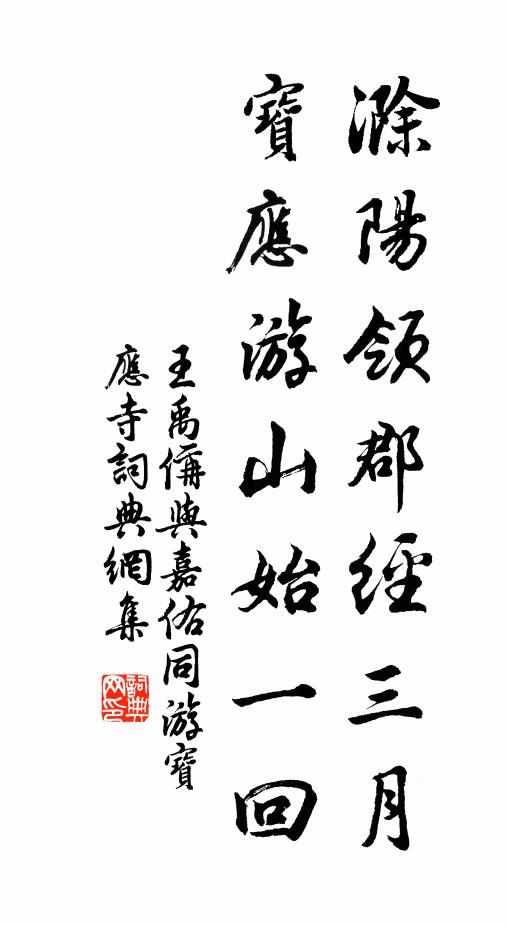 滁陽領郡經三月
寶應游山始一回
王禹偁與嘉佑同游寶
應寺詞典網集
詞典
网印